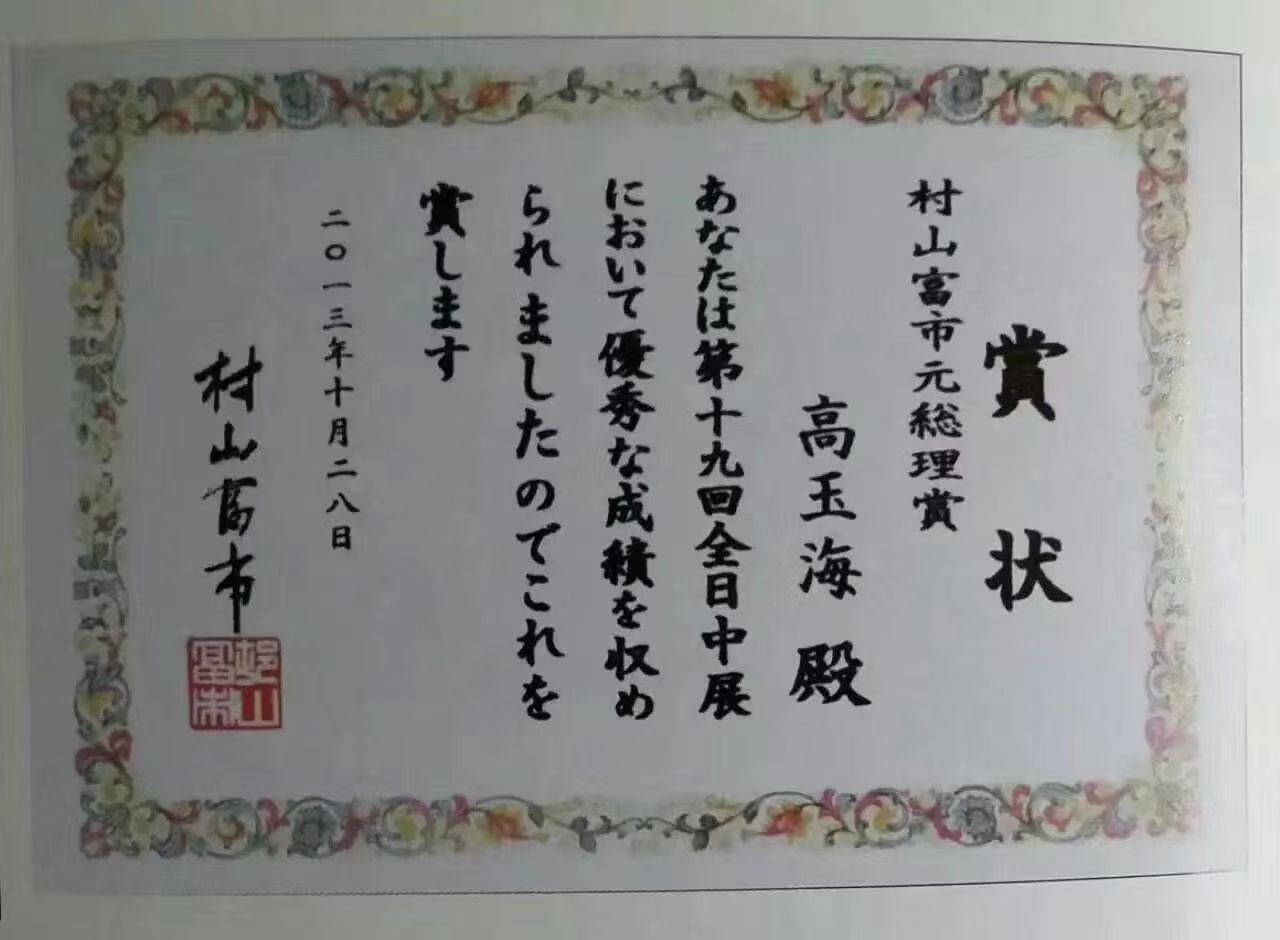 賞状
村山富市元総理賞
高玉海殿
あなたは第十九回全日中展
において優秀な成績を収め
られましたのでこれを
賞します
二〇一三年十月二八日
村山富市
村山富市